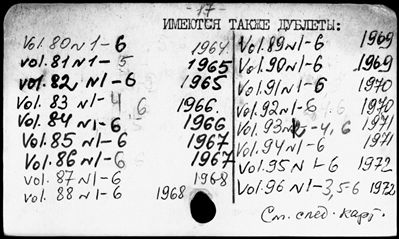 - 17 -
ИМЕЮТСЯ ТАКЖЕ ДУБЛЕТЫ:
Vol. 80 №1-6 1964
Vol. 81 №1-5 1965
Vol. 82 №1-6 1965
Vol. 83 №1-4 6 1966.
Vol. 84 №1-6 1966
Vol. 85 №1-6 1967
Vol. 86 №1-6 1967
Vol. 87 №1-6 1968
Vol. 88 №1-6 1968
Vol. 89 №1-6 1969
Vol. 90 №1-6 1969
Vol. 91 №1-6 1970
Vol. 92 №1-6 1970
Vol. 93 -4, 6 1971
Vol. 94 №1-6 1971
Vol. 95 №1-6 1972
Vol. 96 №1-3,5-6 1972
См. след. карт.